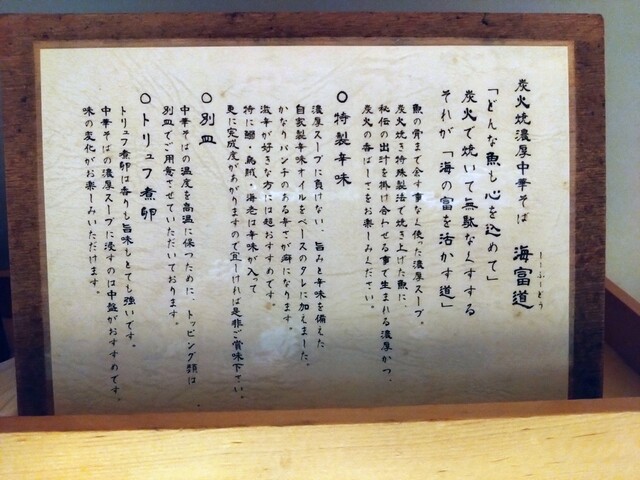 炭火焼濃厚中華そば 海富道
しーふーどう
「どんな魚も心を込めて」
炭火で焼いて無駄なくすする
それが「海の富を活かす道」
魚の骨まで余す事なく使った濃厚スープ。
炭火焼き特殊製法で焼き上げた魚に、
秘伝の出汁を掛け合わせる事で生まれる濃厚かつ、
炭火の香ばしさをお楽しみください。
〇特製辛味
濃厚スープに負けない、旨みと辛味を備えた
自家製辛味オイルをベースのタレに加えました。
かなりパンチのある辛さが癖になります。
激辛が好きな方には超おすすめです。
特に鰮・烏賊・海老は辛味が入って
更に完成度があがりますので宜しければ是非ご賞味下さい。
〇別皿
中華そばの温度を高温に保つために、トッピング類は
別皿でご用意させていただいております。
〇トリュフ煮卵
トリュフ煮卵は香りも旨味もとても強いです。
中華そばの濃厚スープに浸すのは中盤がおすすめです。
味の変化がお楽しみいただけます。